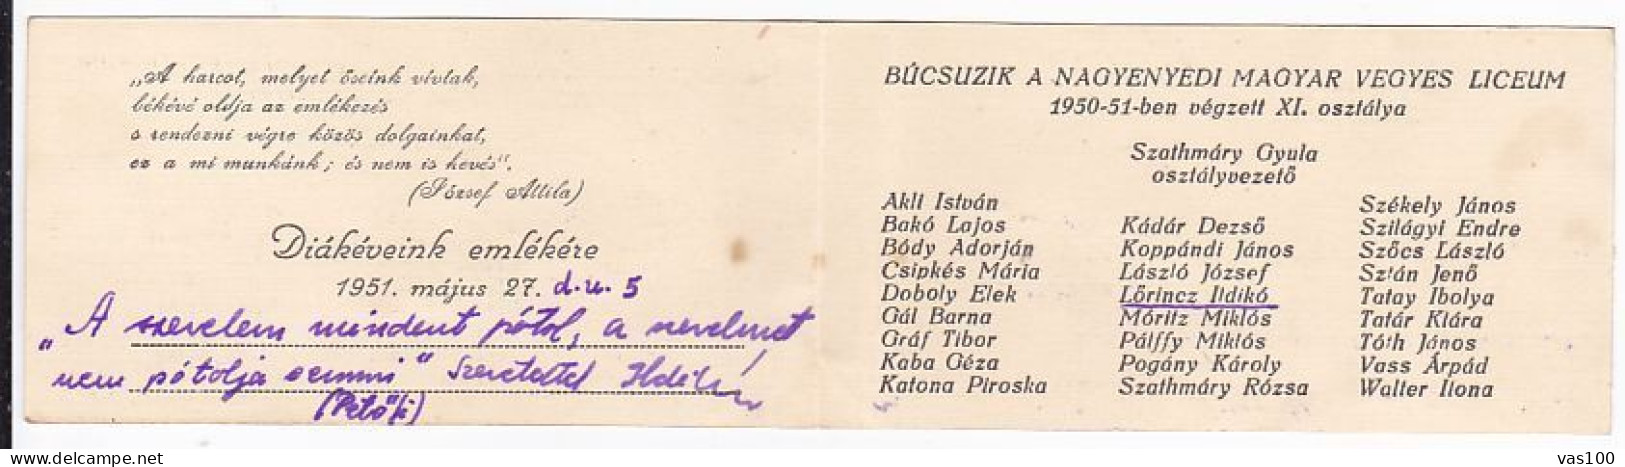 „A harcot, melyet őseink vívtak,
békévé oldja az emlékezés
s rendezni végre közös dolgainkat,
ez a mi munkánk; és nem is kevés".
(József Attila)
Diákéveink emlékére
1951. május 27. d.u. 5
„A szerelem mindent pótol, a szerelmet
nem pótolja semmi" Szeretettel Ildikó
(Petőfi)
BÚCSUZIK A NAGYENYEDI MAGYAR VEGYES LICEUM
1950-51-ben végzett XI. osztálya
Szathmáry Gyula
osztályvezető
Akli István
Bakó Lajos
Bódy Adorján
Csipkés Mária
Doboly Elek
Gál Barna
Gráf Tibor
Kaba Géza
Katona Piroska
Kádár Dezső
Koppándi János
László József
Lőrincz Ildikó
Móritz Miklós
Pálffy Miklós
Pogány Károly
Szathmáry Rózsa
Székely János
Szilágyi Endre
Szőcs László
Sztán Jenő
Tatay Ibolya
Tatár Klára
Tóth János
Vass Árpád
Walter Ilona
www.delcampe.net
vas100